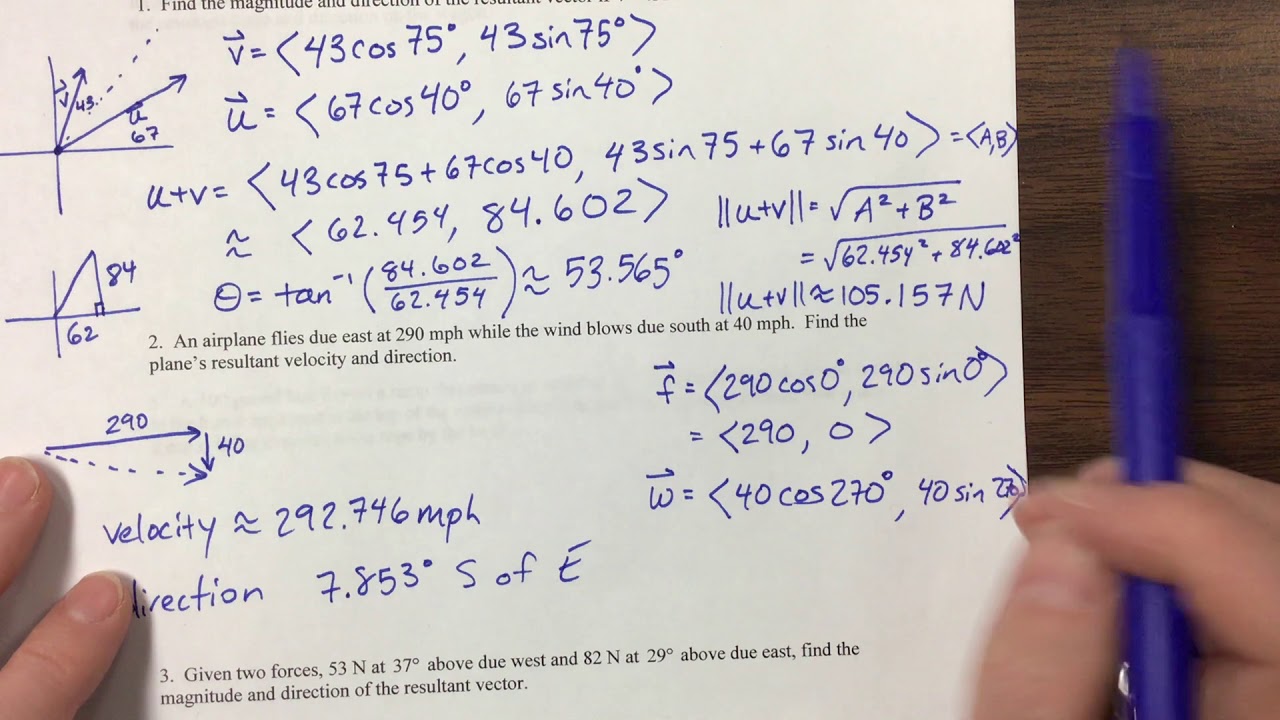 1. Find the magnitude and direction of the resultant vector if
v⃗ = ⟨43cos75°, 43sin75°⟩
u⃗ = ⟨67cos40°, 67sin40°⟩
v⃗ 43
u⃗
67
u+v = ⟨43cos75+67cos40, 43sin75+67sin40⟩ = ⟨A,B⟩
≈ ⟨62.454, 84.602⟩
||u+v|| = √A²+B²
= √62.454²+84.602²
84
62
θ = tan⁻¹(84.602/62.454) ≈ 53.565°
||u+v|| ≈ 105.157N
2. An airplane flies due east at 290 mph while the wind blows due south at 40 mph. Find the
plane's resultant velocity and direction.
f⃗ = ⟨290cos0°, 290sin0°⟩
= ⟨290, 0⟩
290
40
w⃗ = ⟨40cos270°, 40sin270⟩
velocity ≈ 292.746mph
direction 7.853° S of E
3. Given two forces, 53 N at 37° above due west and 82 N at 29° above due east, find the
magnitude and direction of the resultant vector.